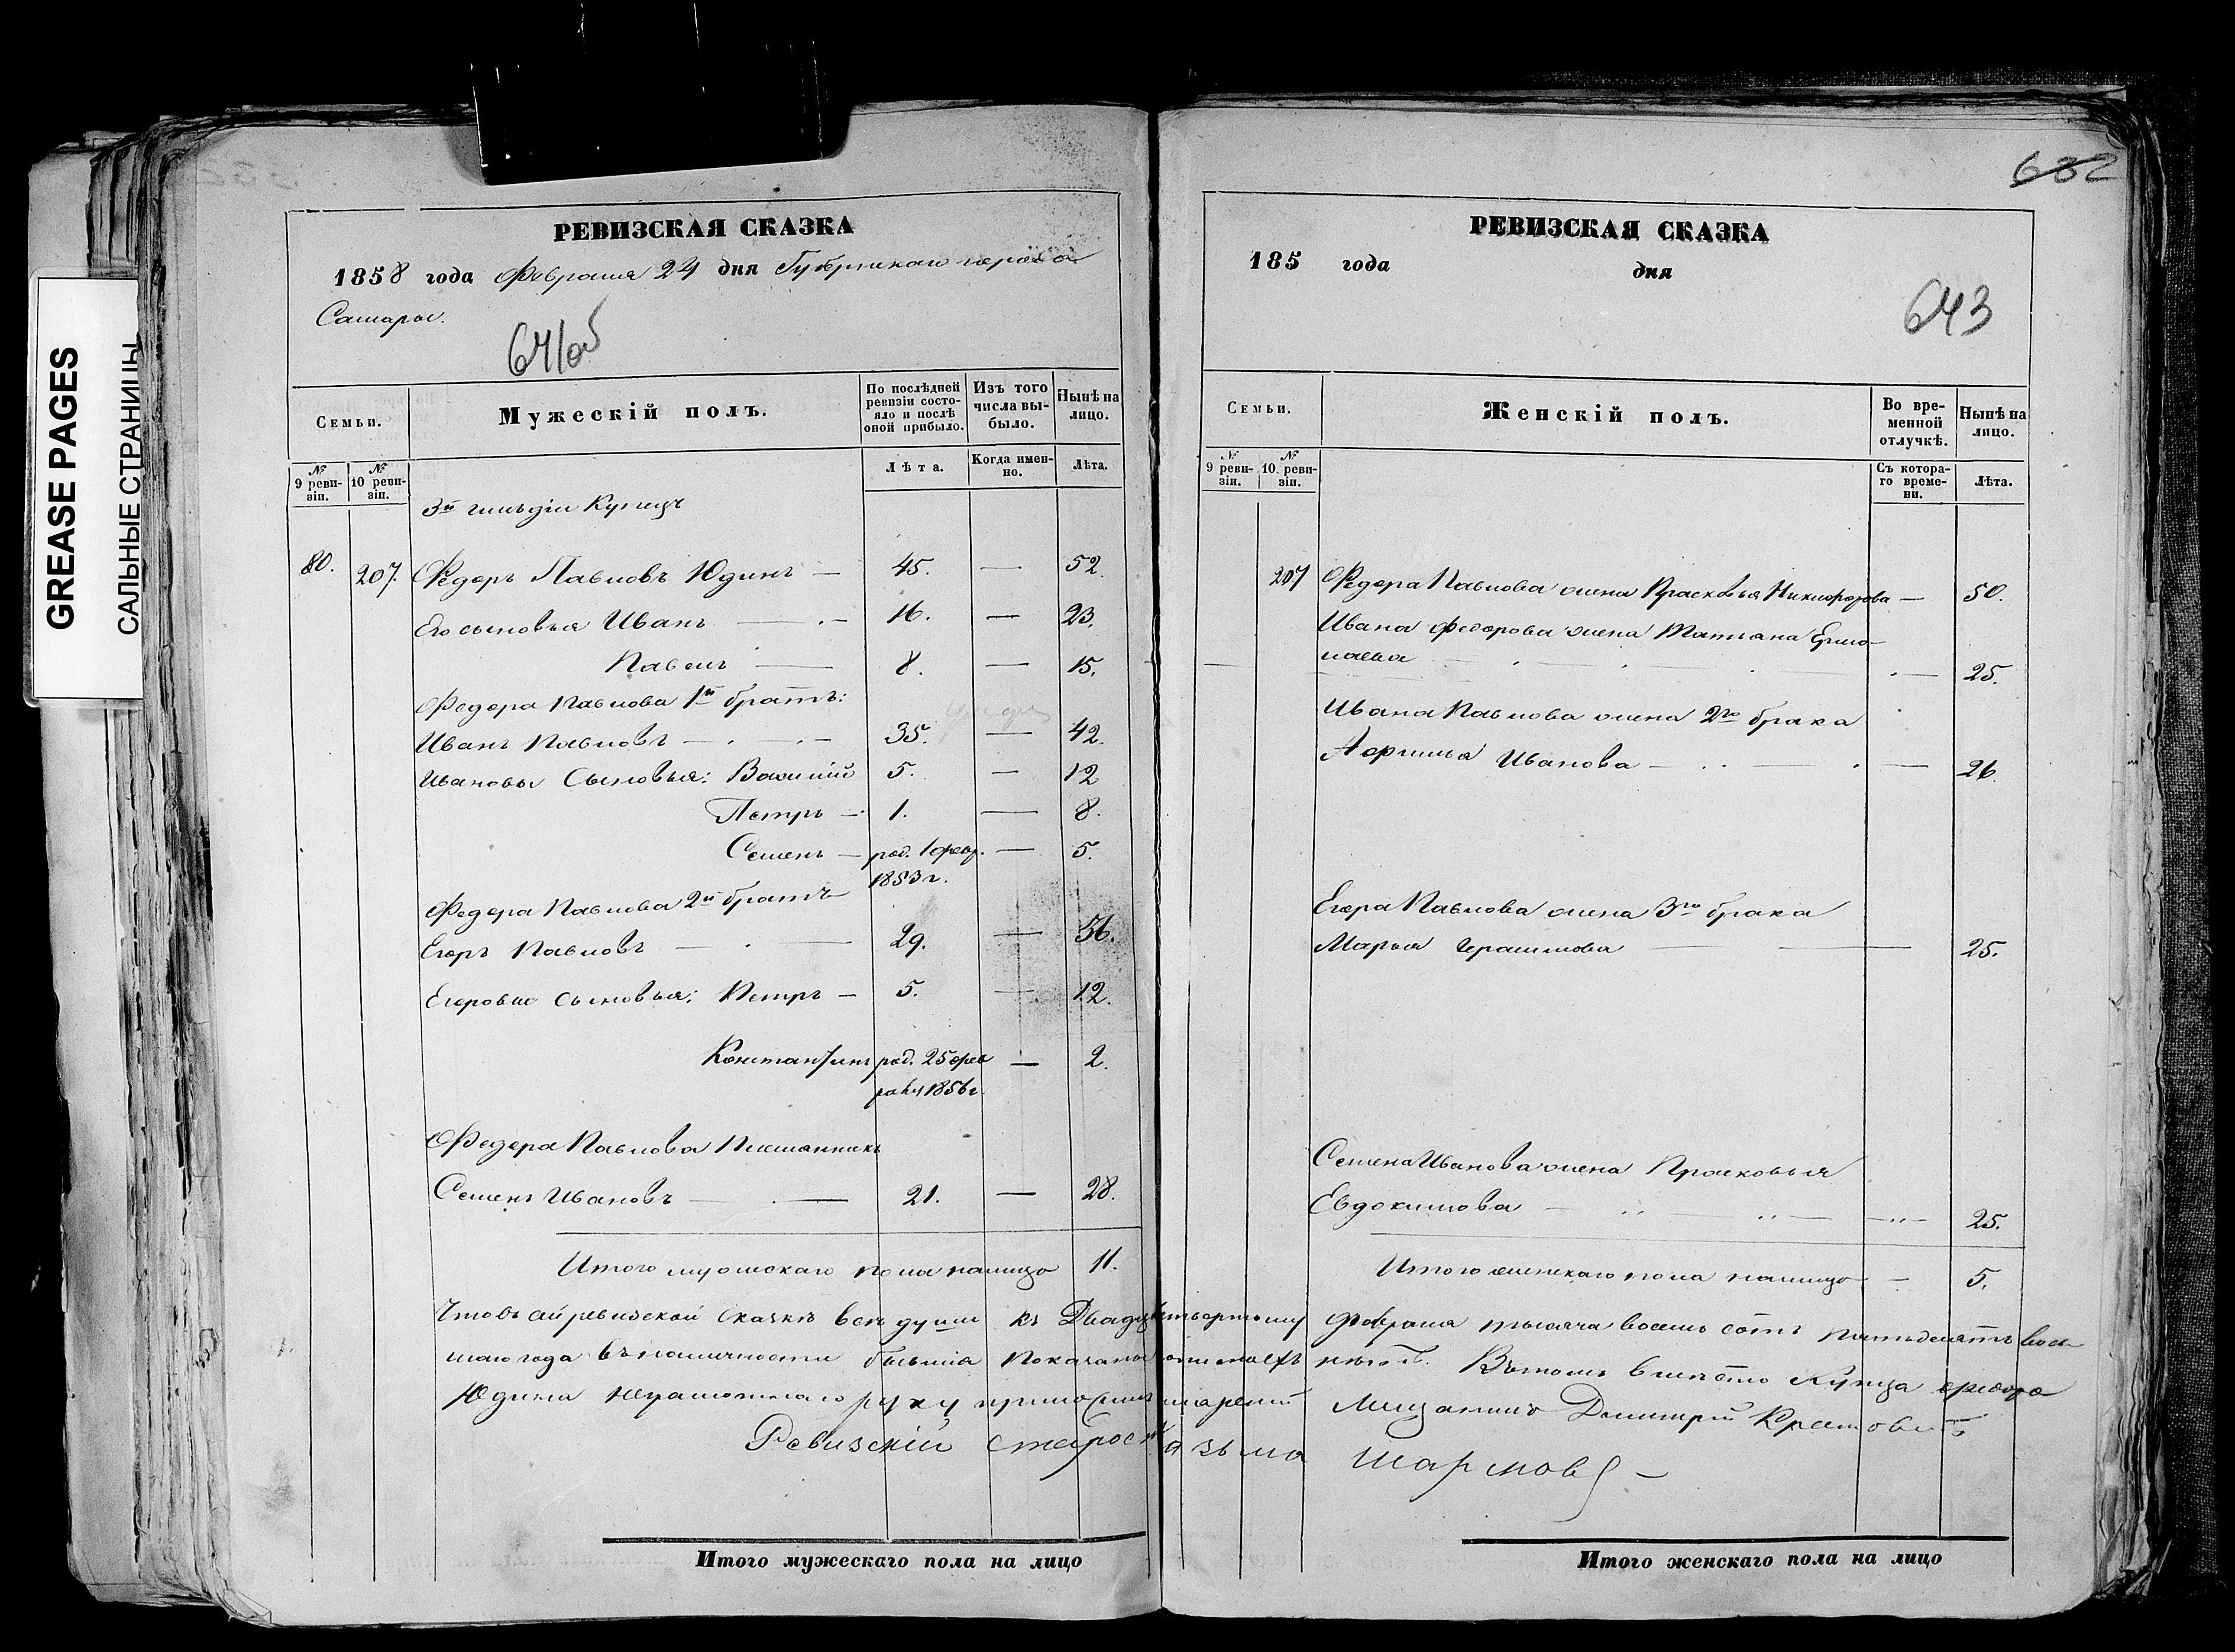 GREASE PAGES
САЛЬНЫЕ СТРАНИЦЫ
РЕВИЗСКАЯ СКАЗКА
1858 года Февраля 24 дня Губернскаго города
Самары.
641об
Семьи.
Мужескій полъ.
По послѣдней ревизіи состояло и послѣ оной прибыло.
Изъ того числа выбыло.
Нынѣ на лицо.
№ 9 ревизіи.
№ 10 ревизіи.
Лѣта.
Когда именно.
Лѣта.
3й гильдіи Купецъ
80. 207. Федоръ Павловъ Юдинъ — 45. — 52.
Его сыновья Иванъ — 16. — 23.
Павелъ — 8. — 15.
Федора Павлова 1й братъ:
Иванъ Павловъ — 35. — 42.
Ивановы Сыновья: Василій 5. — 12
Петръ — 1. — 8.
Семенъ — род. 1 февр. — 5.
1853 г.
Федора Павлова 2й братъ
Егоръ Павловъ — 29. — 36.
Егоровы сыновья: Петръ — 5. — 12.
Константинъ род. 25 фев — 2.
раля 1856 г.
Федора Павлова Племянникъ
Семенъ Ивановъ — 21. — 28.
Итого мужескаго пола налицо 11.
632
РЕВИЗСКАЯ СКАЗКА
185 года дня
643
Семьи.
Женскій полъ.
Во временной отлучкѣ.
Нынѣ на лицо.
№ 9 ревизіи.
№ 10. ревизіи.
Съ котораго времени.
Лѣта.
207 Федора Павлова жена Прасковья Никифорова — 50.
Ивана Федорова жена Татьяна Ермо-
лаева — 25.
Ивана Павлова жена 2го брака
Афимья Иванова — 26.
Егора Павлова жена 3го брака
Марья Герасимова — 25.
Семена Иванова жена Прасковья
Евдокимова — 25.
Итого женскаго пола налицо — 5.
Что въ сей ревизской сказкѣ всѣ души къ Февраля тысяча восемь сотъ пятьдесятъ вось
маго года въ наличности бывшія показаны Въ томъ вмѣсто Купца Федора
Юдина неграмотнаго руку приложилъ Мещанинъ Дмитрій
Ревизскій Старост Шарловъ
Итого мужескаго пола на лицо
Итого женскаго пола на лицо